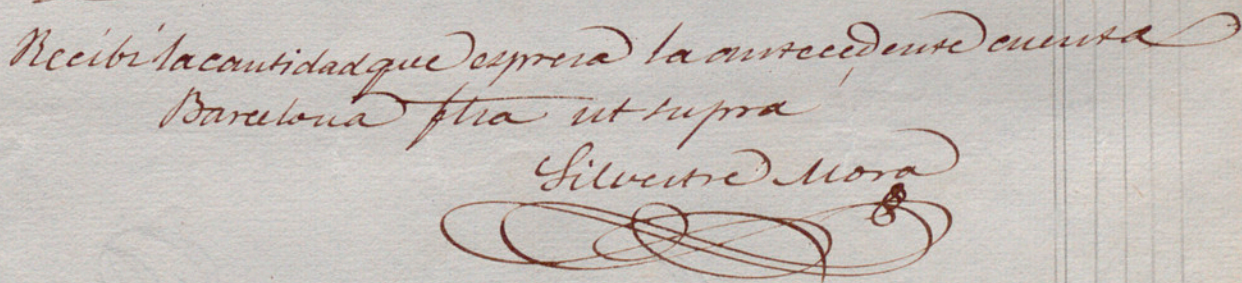 Recibi la cantidad que espresa la antecedente cuenta
Barcelona ftra ut supra
Silvestre Mora